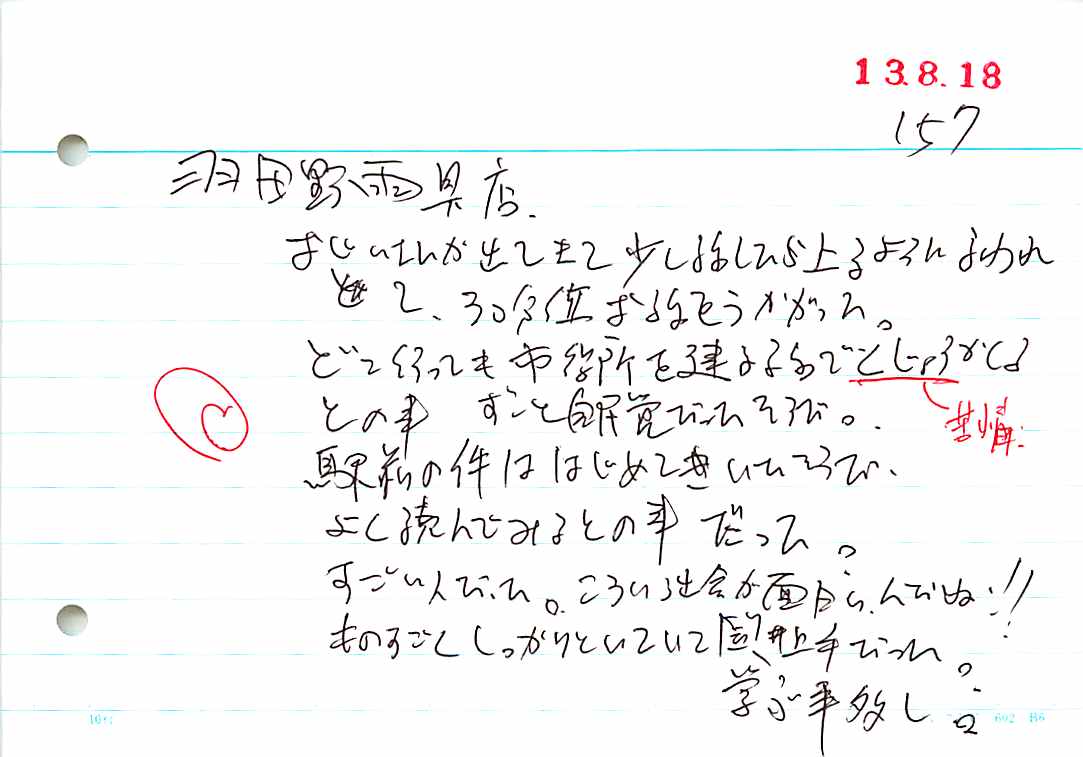 13.8.18
157
羽田野雨具店.
おじいさんが出てきて少し話したら上るように言われ
て、30分位お話をうかがった。
どこ行っても市役所を建よるのでくじょうがくる
との事 ずっと自民党だったそうだ。
苦情
駅前の件ははじめてきいたそうだ、
よく読んでみるとの事だった。
すごい人だった。こういう出会が面白いんだね!!
ものすごくしっかりとしていて 上手だった。
学ぶ事多し。
602 B6